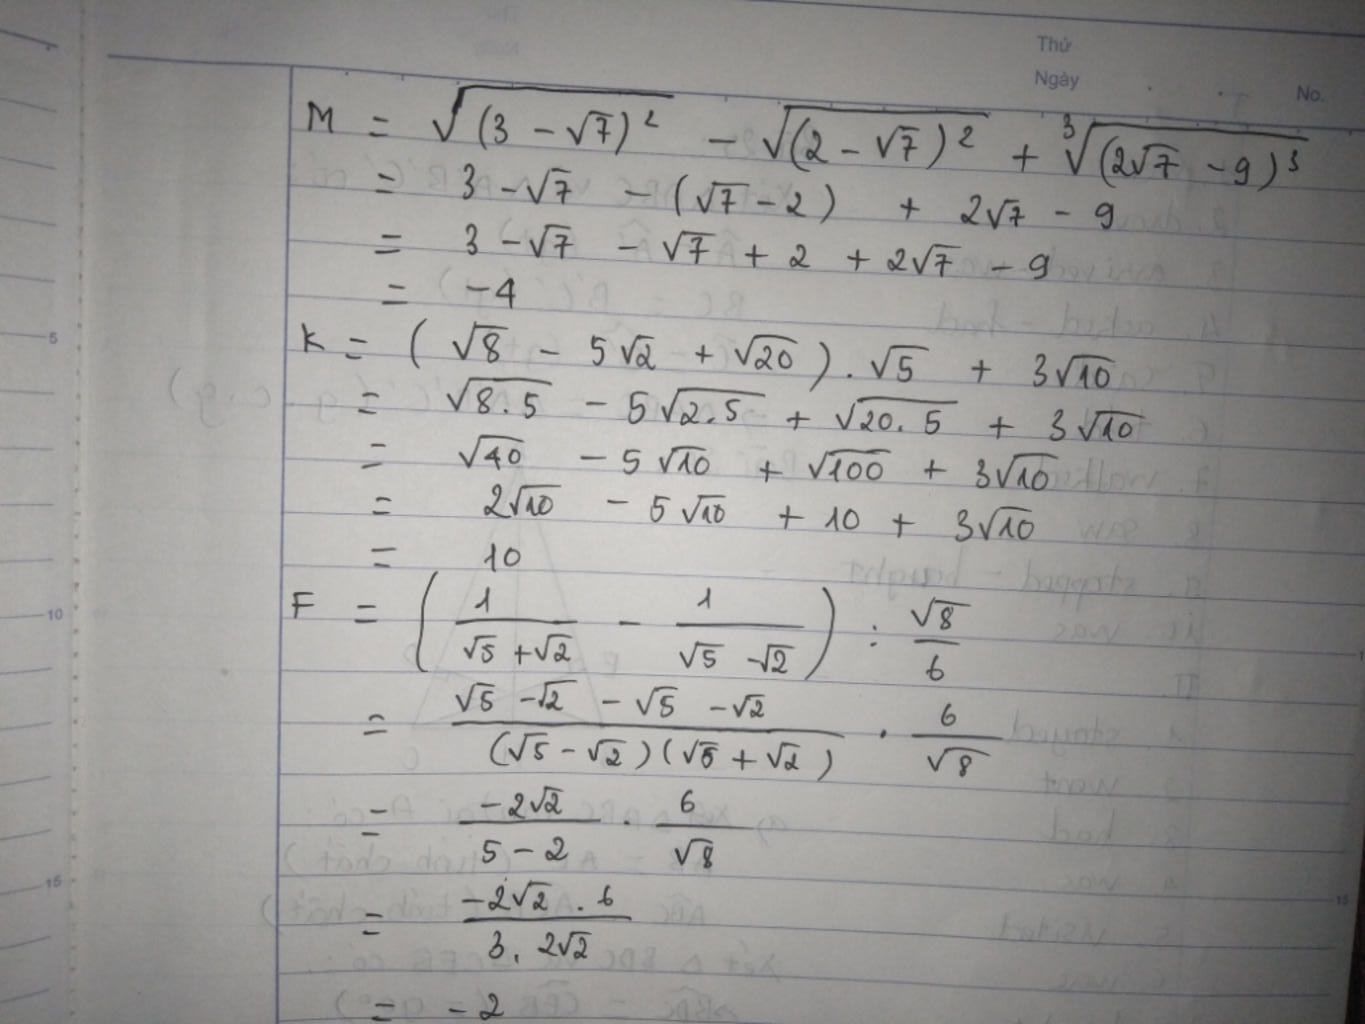 Thứ
Ngày
No.
M = √(3 - √7)² - √(2 - √7)² + ∛(2√7 - 9)³
= 3 - √7 - (√7 - 2) + 2√7 - 9
= 3 - √7 - √7 + 2 + 2√7 - 9
= -4
K = (√8 - 5√2 + √20) . √5 + 3√10
= √8.5 - 5√2.5 + √20.5 + 3√10
= √40 - 5√10 + √100 + 3√10
= 2√10 - 5√10 + 10 + 3√10
= 10
F = (1/(√5 + √2) - 1/(√5 - √2)) : √8/6
= (√5 - √2 - √5 - √2)/((√5 - √2)(√5 + √2)) . 6/√8
= -2√2/(5 - 2) . 6/√8
= (-2√2 . 6)/(3 . 2√2)
= -2
5
10
15
15